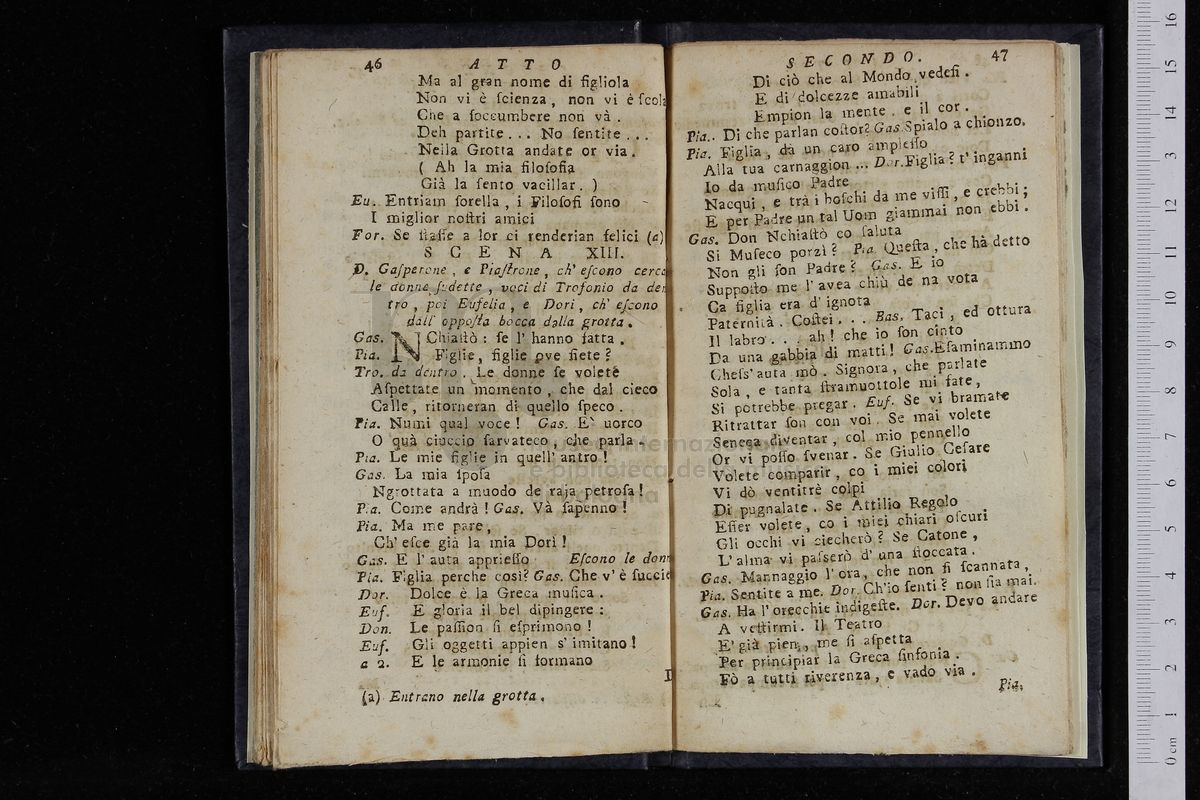 46 ATTO
Ma al gran nome di figliola
Non vi è ſcienza, non vi è ſcola
Che a ſoccumbere non và.
Deh partite... No ſentite...
Nella Grotta andate or via.
( Ah la mia filoſofia
Già la ſento vacillar. )
Eu. Entriam ſorella, i Filoſofi ſono
I miglior noſtri amici
For. Se ſtaſſe a lor ci renderian felici (a)
SCENA XIII.
D. Gaſperone, e Piaſtrone, ch' eſcono cerca
le donne ſudette, voci di Trofonio da den
tro, poi Eufelia, e Dori, ch' eſcono
dall' oppoſta bocca dalla grotta.
Gas. NChiaſtò: ſe l' hanno fatta.
Pia. Figlie, figlie ove ſiete?
Tro. da dentro. Le donne ſe volete
Aſpettate un momento, che dal cieco
Calle, ritorneran di quello ſpeco.
Pia. Numi qual voce! Gas. E' uorco
O quà ciuccio ſarvateco, che parla.
Pia. Le mie figlie in quell' antro!
Gas. La mia ſpoſa
Ngrottata a muodo de raja petroſa!
Pia. Come andrà! Gas. Và ſapenno!
Pia. Ma me pare,
Ch' eſce già la mia Dori!
Gas. E l' auta apprieſſo Eſcono le donn
Pia. Figlia perche così? Gas. Che v' è ſuccie
Dor. Dolce è la Greca muſica.
Euf. E gloria il bel dipingere:
Don. Le paſſion ſi eſprimono!
Euf. Gli oggetti appien s' imitano!
a 2. E le armonie ſi formano
(a) Entrano nella grotta.
SECONDO. 47
Di ciò che al Mondo vedeſi.
E di dolcezze amabili
Empion la mente, e il cor.
Pia. Di che parlan coſtor? Gas. Spialo a chionzo.
Pia. Figlia, dà un caro ampleſſo
Alla tua carnaggion... Dor. Figlia? t' inganni
Io da muſico Padre
Nacqui, e trà i boſchi da me viſſi, e crebbi;
E per Padre un tal Uom giammai non ebbi.
Gas. Don Nchiaſtò co ſaluta
Si Muſeco porzì? Pia. Queſta, che hà detto
Non gli ſon Padre? Gas. E io
Suppoſto me l' avea chiù de na vota
Ca figlia era d' ignota
Paternità. Coſtei... Bas. Taci, ed ottura
Il labro... ah! che io ſon cinto
Da una gabbia di matti! Gas. Eſaminammo
Cheſs' auta mò. Signora, che parlate
Sola, e tanta ſtramuottole mi fate,
Si potrebbe pregar. Euf. Se vi bramate
Ritrattar ſon con voi. Se mai volete
Seneca diventar, col mio pennello
Or vi poſſo ſvenar. Se Giulio Ceſare
Volete comparir, co i miei colori
Vi dò ventitrè colpi
Di pugnalate. Se Attilio Regolo
Eſſer volete, co i miei chiari oſcuri
Gli occhi vi ciecherò? Se Catone,
L' alma vi paſserò d' una ſtoccata.
Gas. Mannaggio l' ora, che non ſi ſcannata,
Pia. Sentite a me. Dor. Ch'io ſenti? non ſia mai.
Gas. Ha l' orecchie indigeſte. Dor. Devo andare
A veſtirmi. Il Teatro
E' già pieno, me ſi aſpetta
Per principiar la Greca ſinfonia.
Fò a tutti riverenza, e vado via.
Pia.